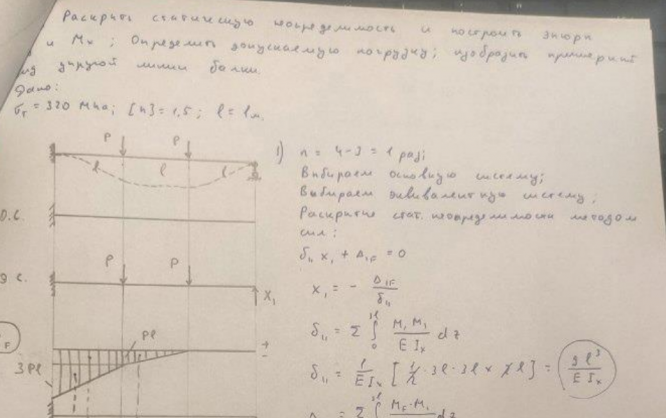 Раскрыть статическую неопределимость и построить эпюры
и Mx; Определить допускаемую нагрузку; изобразить примерный
упругой линии балки.
Дано:
σт = 320 Мпа; [n] = 1,5; l = 1м.
P P
l l l
О.С.
Э С.
P P
X1
Pl
+
-
3Pl
F
1) n = 4-3 = 1 раз;
Выбираем основную систему;
Выбираем эквивалентную систему;
Раскрытие стат. неопределимости методом
сил:
δ11 x1 + Δ1F = 0
x1 = - Δ1F / δ11
δ11 = Σ ∫ M1 M1 / E Ix dz
δ11 = 1 / E Ix [1/2 · 3l · 3l × 2l] = 9l³ / E Ix
= Σ ∫ MF · M1